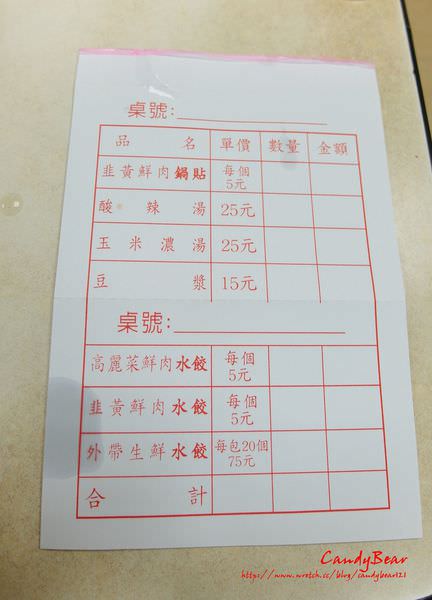 桌號:
品名 單價 數量 金額
韭黃鮮肉鍋貼 每個5元
酸辣湯 25元
玉米濃湯 25元
豆漿 15元
桌號:
高麗菜鮮肉水餃 每個5元
韭黃鮮肉水餃 每個5元
外帶生鮮水餃 每包20個75元
合計
CandyBear
https://www.wretch.cc/blog/candybear121